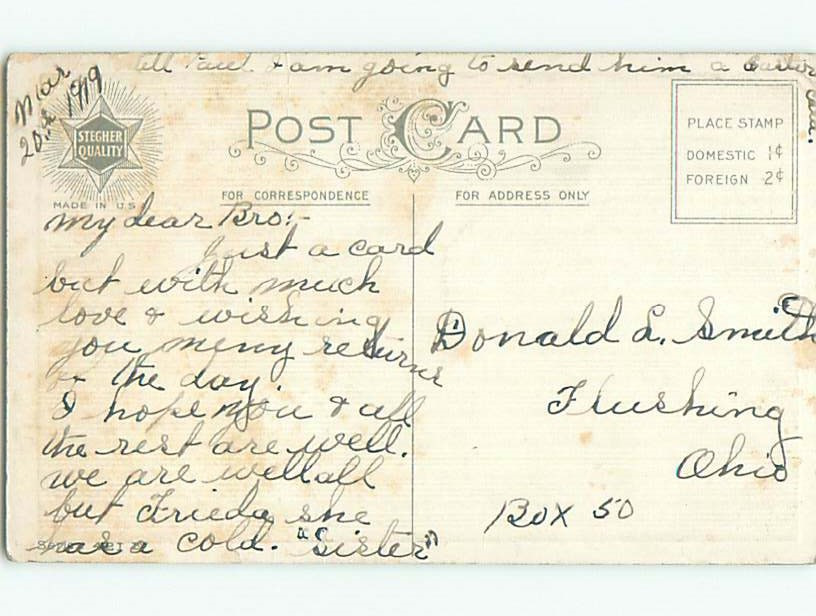 tell Paul I am going to send him a Easter card.
Mar
20th 1919
STEGHER
QUALITY
MADE IN U.S.
POST CARD
FOR CORRESPONDENCE
FOR ADDRESS ONLY
PLACE STAMP
DOMESTIC 1¢
FOREIGN 2¢
my dear Bro:-
Just a card
but with much
love & wishing
you meny returns
of the day.
I hope you & all
the rest are well.
we are well all
but Frieda she
has a cold. "Sister"
Donald L. Smith
Flushing
Ohio
Box 50